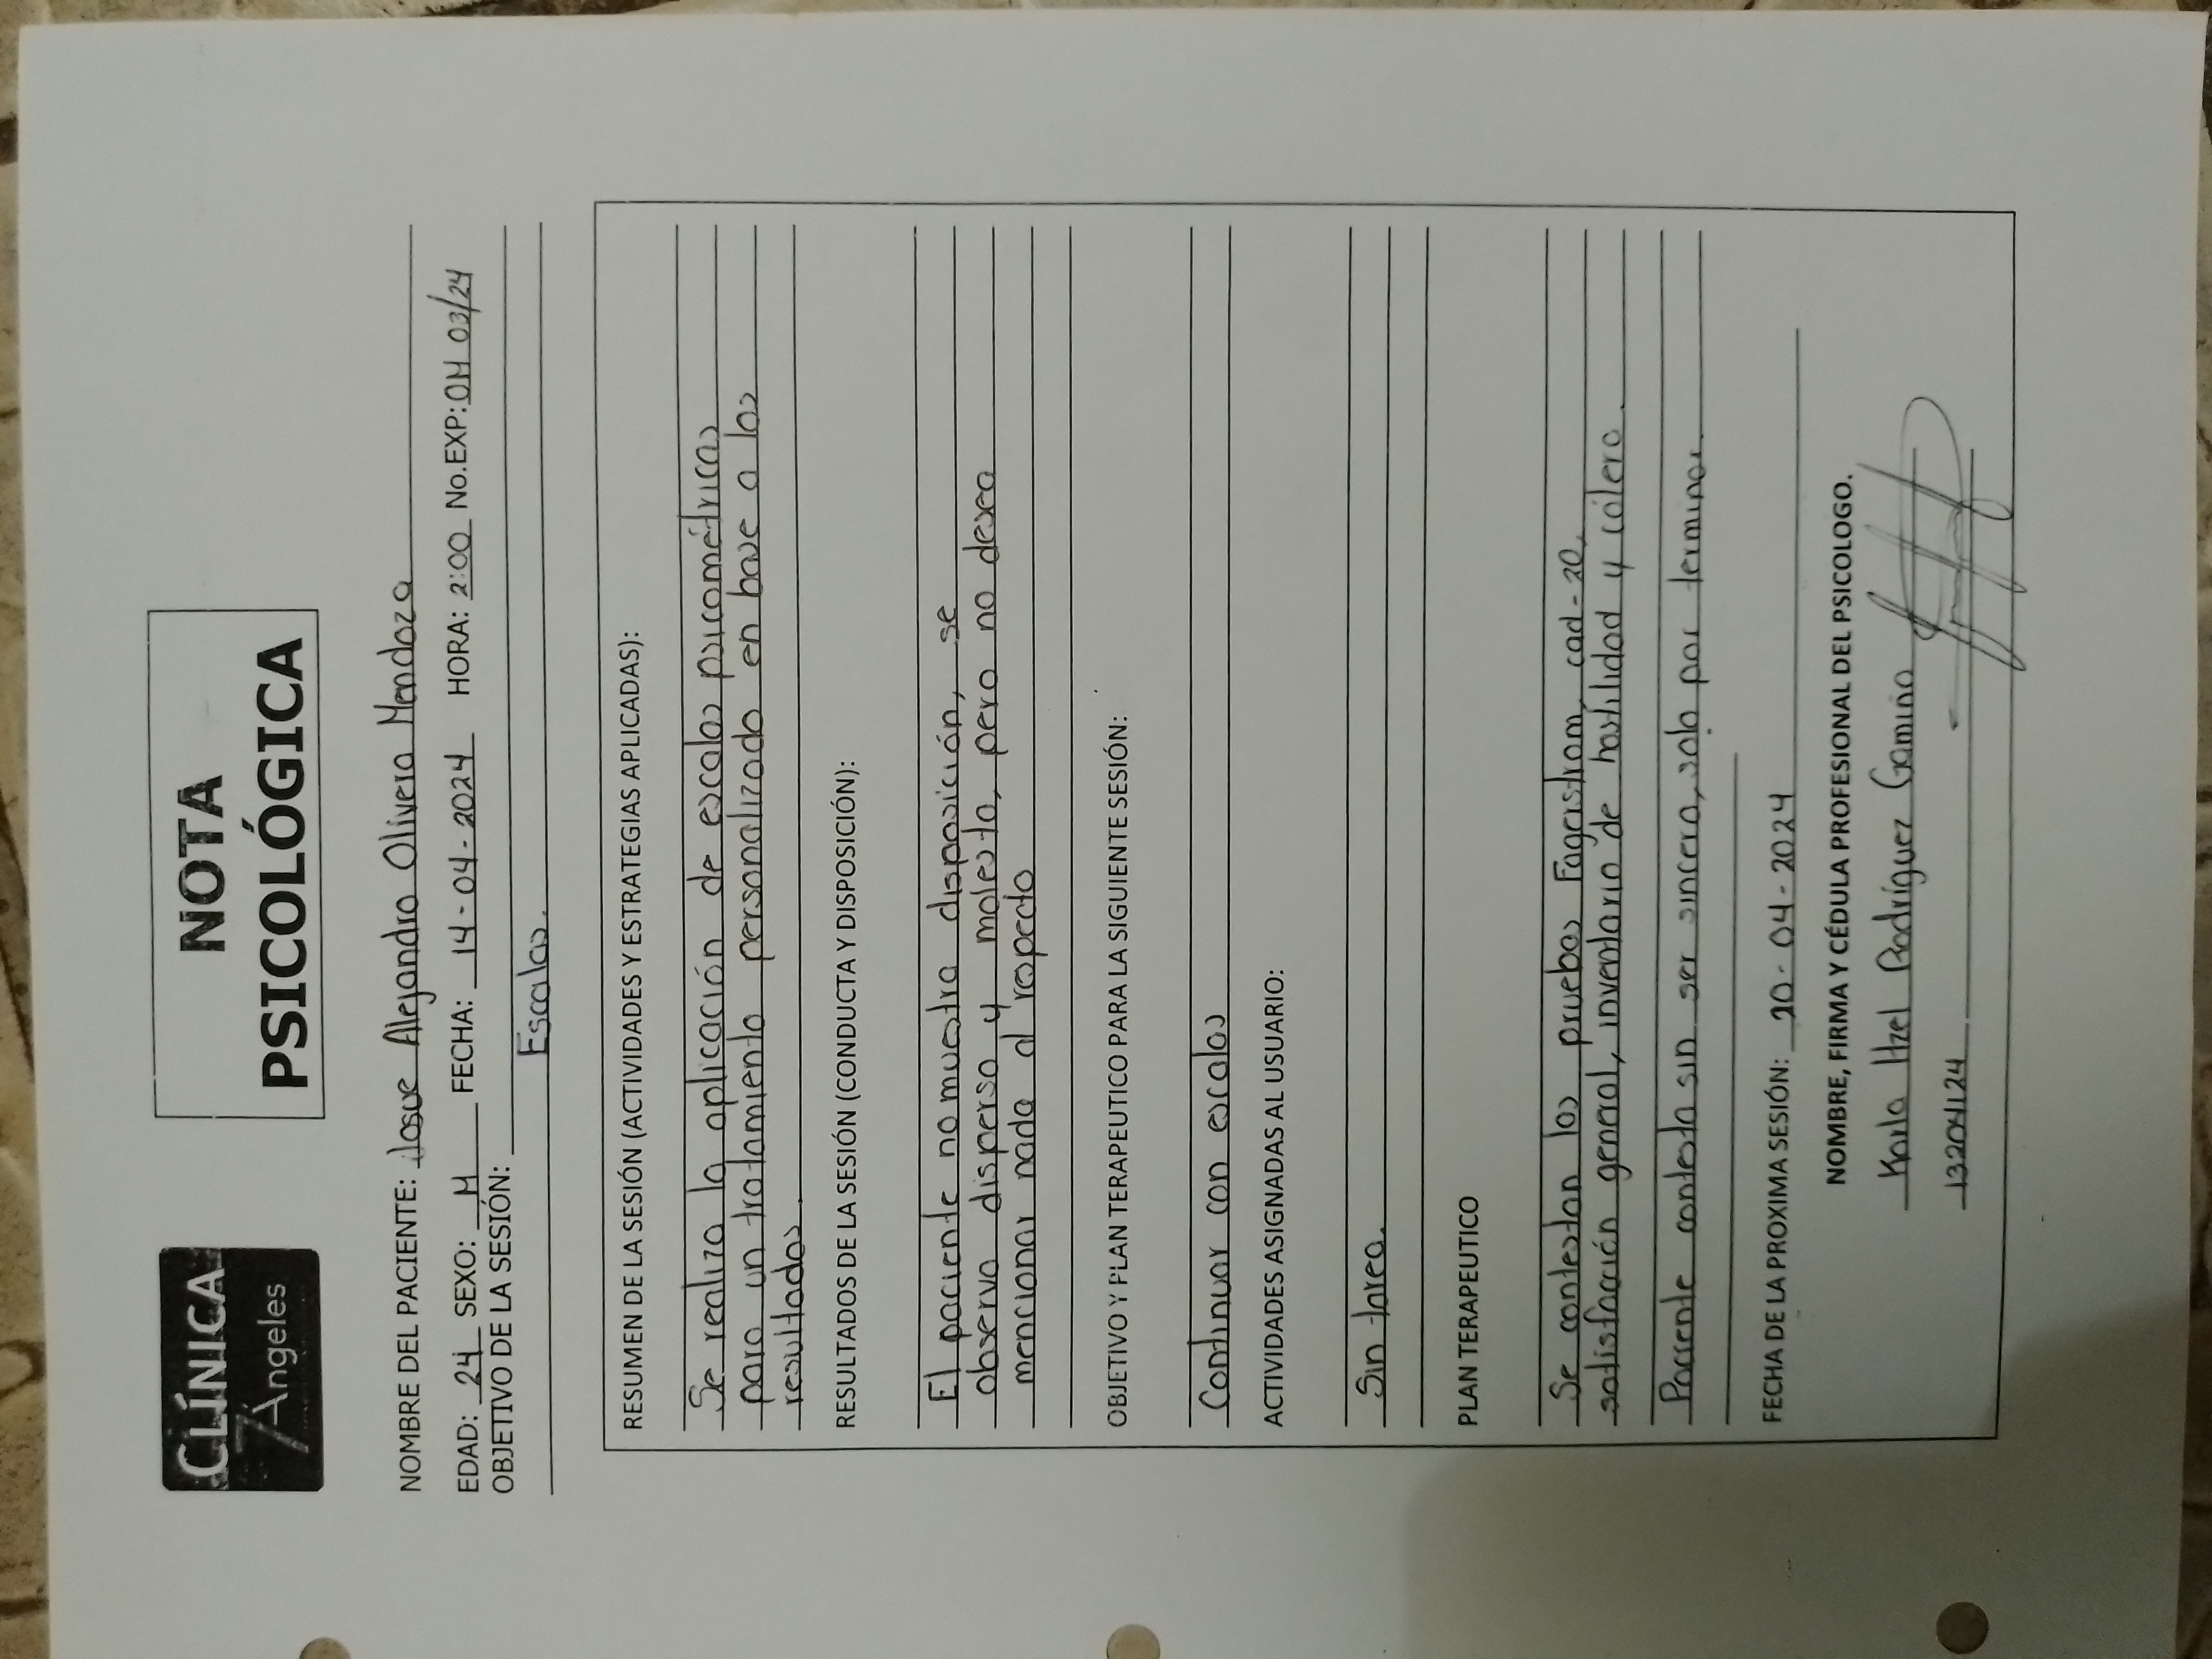 CLÍNICA
7 Ángeles
NOTA
PSICOLÓGICA
NOMBRE DEL PACIENTE: Josue Alejandro Olivera Mendoza
EDAD: 24 SEXO: M FECHA: 14-04-2024 HORA: 2:00 No.EXP: OM 03/24
OBJETIVO DE LA SESIÓN:
Escalas.
RESUMEN DE LA SESIÓN (ACTIVIDADES Y ESTRATEGIAS APLICADAS):
Se realiza la aplicación de escalas psicométricas
para un tratamiento personalizado en base a los
resultados.
RESULTADOS DE LA SESIÓN (CONDUCTA Y DISPOSICIÓN):
El paciente no muestra disposición, se
observa disperso y molesto, pero no desea
mencionar nada al respecto
OBJETIVO Y PLAN TERAPEUTICO PARA LA SIGUIENTE SESIÓN:
Continuar con escalas
ACTIVIDADES ASIGNADAS AL USUARIO:
Sin tarea.
PLAN TERAPEUTICO
Se contestan las pruebas Fagerstrom, cad-20,
satisfacción general, inventario de hostilidad y cólera.
Paciente contesta sin ser sincero, solo por terminar.
FECHA DE LA PROXIMA SESIÓN: 20-04-2024
NOMBRE, FIRMA Y CÉDULA PROFESIONAL DEL PSICOLOGO.
Karla Itzel Rodríguez Gamiño
13204124